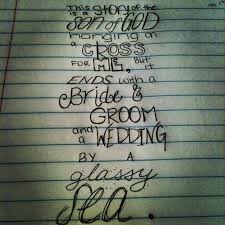 This is a STORY of the
SON of GOD
Hanging on
a CROSS
FOR ME, But it
ENDS with a
Bride &
GROOM
and a WEDDING
BY A
glassy
Sea.